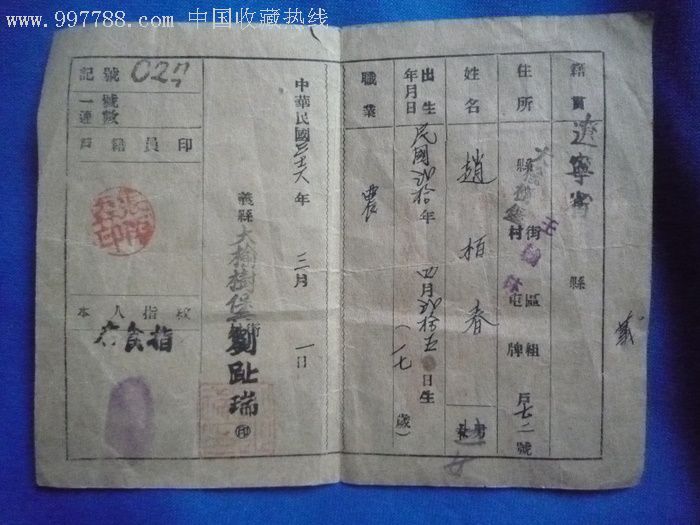 www.997788.com 中国收藏热线
籍貫 遼寧省 縣 義
住所 縣 街村 區屯 組牌 戶七二號
姓名 趙栢春
出生年月日 民國 年 四月 日生（一七歲）
職業 農
中華民國三十六年 三月 一日
義縣大榆樹堡 街 劉趾瑞 ㊞
記號 027
一連號數
戶籍員印
本人指紋
右食指